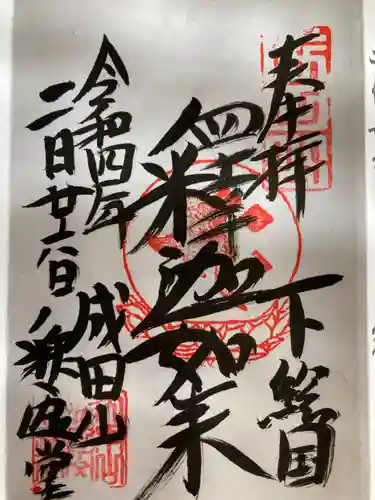 奉拝
下総国
釋迦如来
成田山
釈迦堂
令和四年
二月廿六日